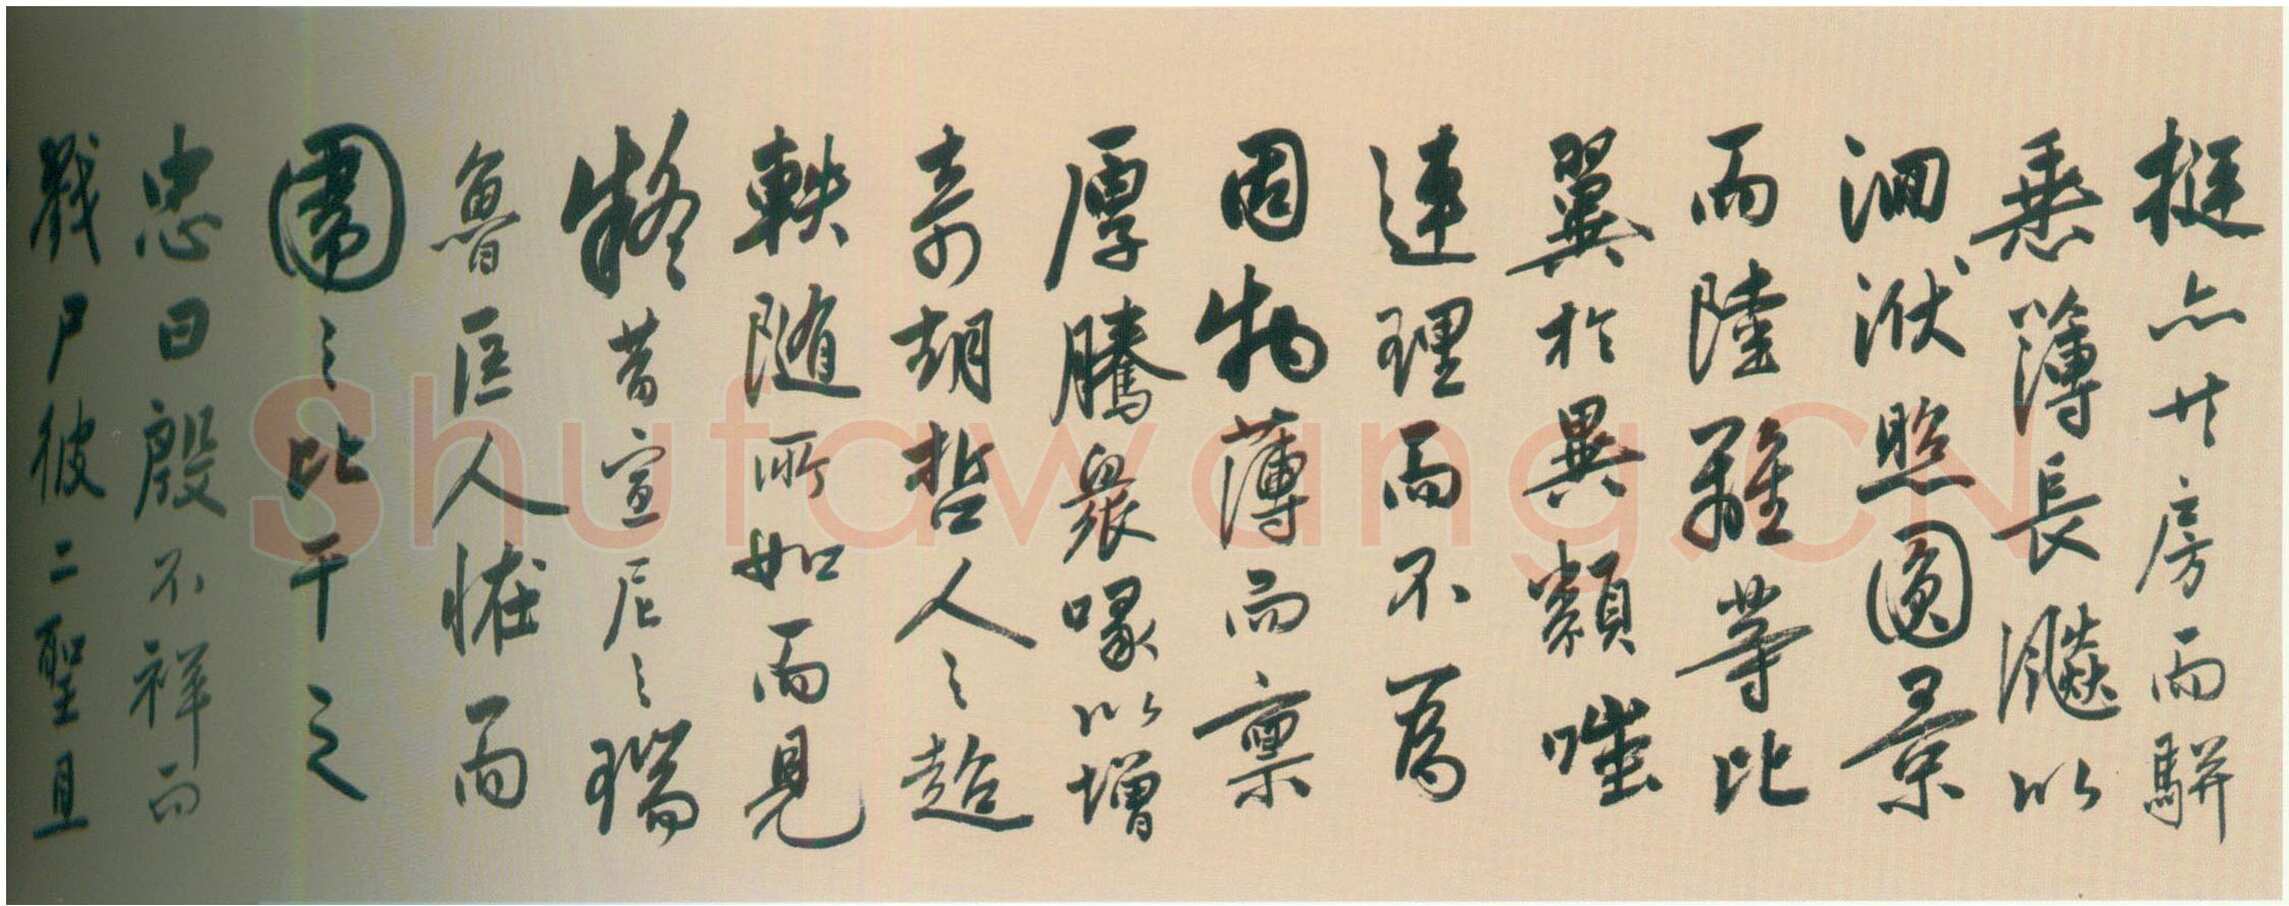 挺亦共房而駢
簿長飈以
洄洑照圓景
而陸離等比
翼於異類嗤
連理而不為
固物薄而稟
厚騰眾喙以增
奇胡哲人之超
軼隨所如而見
疑昔宣尼之瑞
魯匡人怪而
圍之比干之
忠曰殷不祥而
戮尸彼二聖且
Shufawang.CN